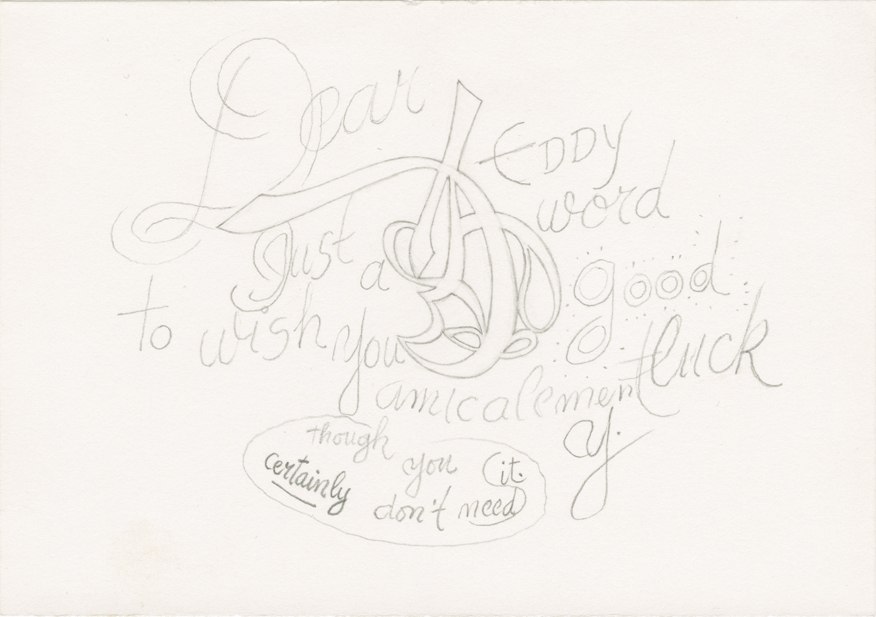 Dear
EDDY
Just a word
to wish you good
luck
amicalement
Y.
though
certainly you (it.
don't need